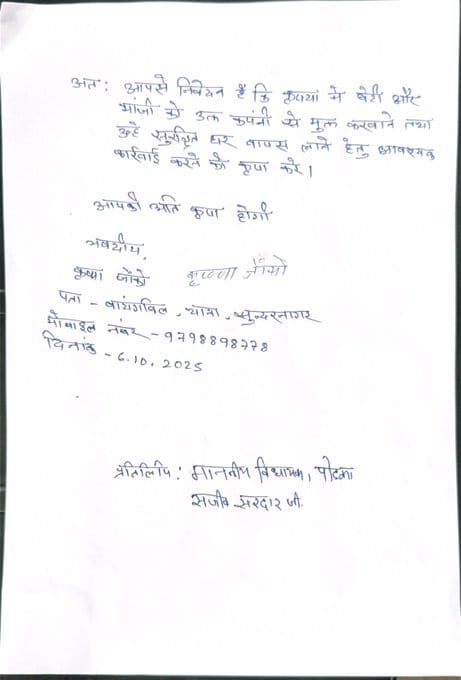 अत: आपसे निवेदन है कि कृपया मे बेटी और
भांजी को उक्त कंपनी से मुक्त करवाने तथा
उन्हे सुरक्षित घर वापस लाने हेतु आवश्यक
कार्रवाई करने की कृपा करें।
आपकी अति कृपा होगी
भवदीय,
कृष्णा जोंको
पता - बायंगबिल, थाना, सुन्दरनगर
मोबाइल नंबर - 9798898778
दिनांक - 6.10.2025
प्रतिलिपि: माननीय विधायक, पोटका
संजीव सरदार जी.